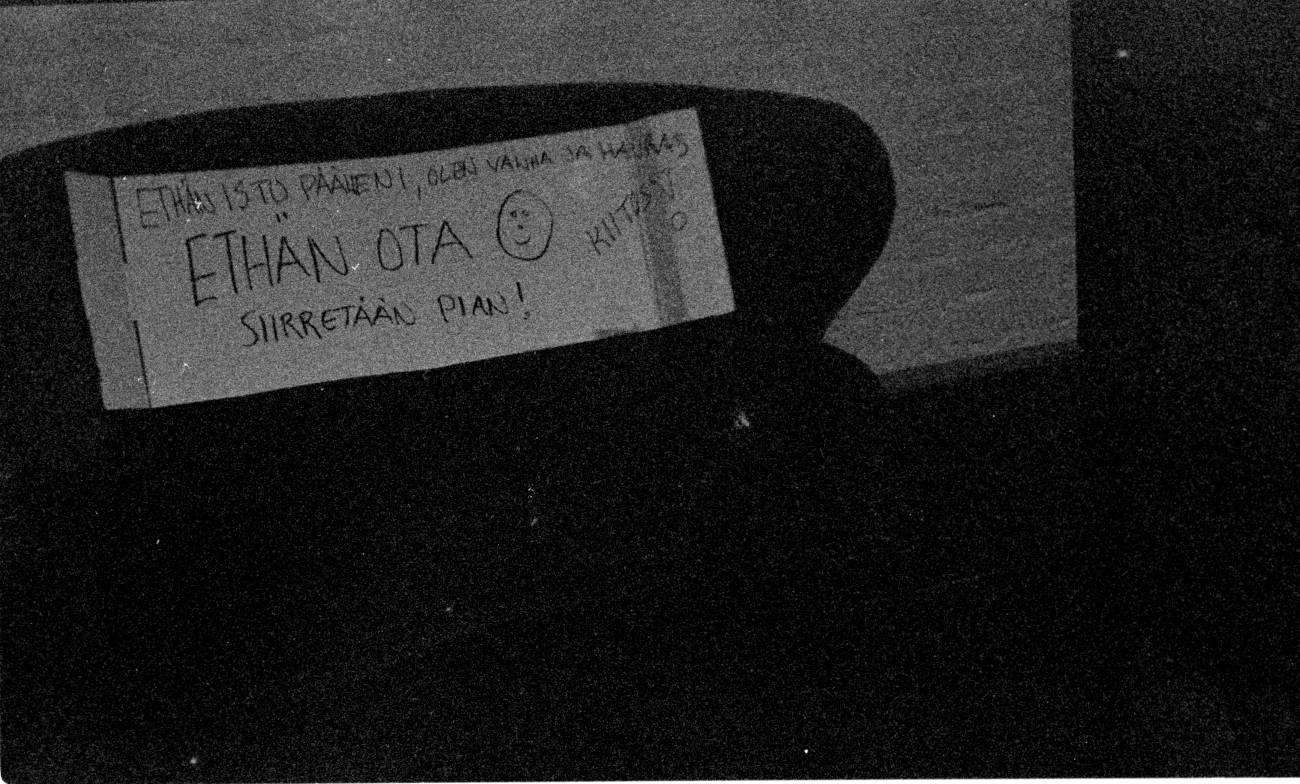 ETHÄN ISTU PÄÄLLENI, OLEN VANHA JA HAURAS
ETHÄN OTA
KIITOS!
SIIRRETÄÄN PIAN!